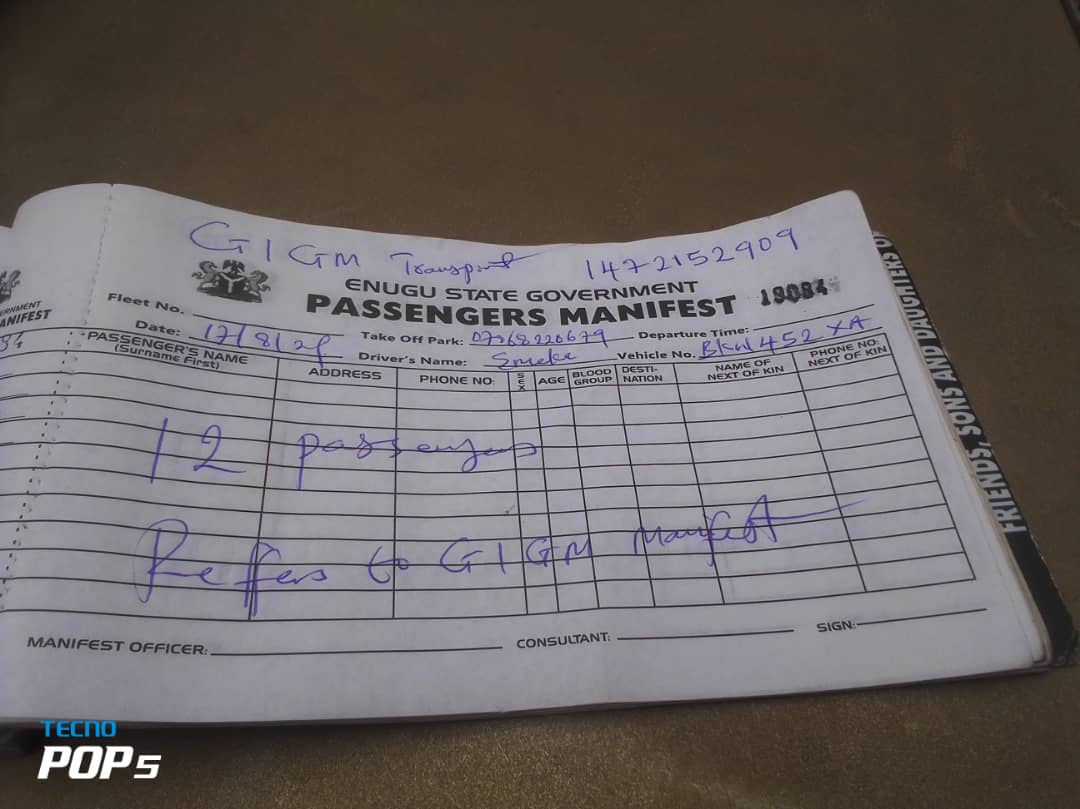 GIGM Transport 1472152909
ENUGU STATE GOVERNMENT
PASSENGERS MANIFEST 19084
Fleet No.
Date: 17/8/2 Take Off Park: 07068220679 Departure Time:
Driver's Name: Emeka Vehicle No. 452 XA
PASSENGER'S NAME (Surname First) ADDRESS PHONE NO: SEX AGE BLOOD GROUP DESTI-NATION NAME OF NEXT OF KIN PHONE NO: NEXT OF KIN
12 passengers
Reffers to GIGM Manifest
MANIFEST OFFICER: CONSULTANT: SIGN:
ERNMENT
ANIFEST
84
FRIENDS, SONS AND DAUGHTERS
TECNO
POP 5